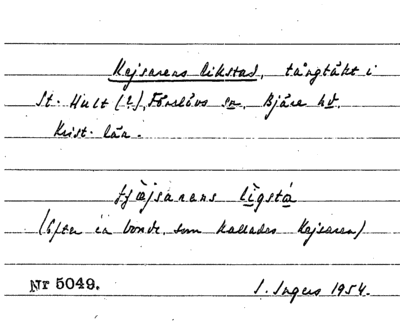 Kejsarens likstad, tångtäkt i
St. Hult (?), Förslövs sn. Bjäre hd.
Krist. län.
tjæjsarans ligstá
(Efter en bonde, som kallades Kejsaren)
Nr 5049. I. Ingers 1954.